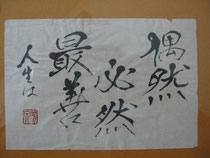 偶然
必然
最善
人生は